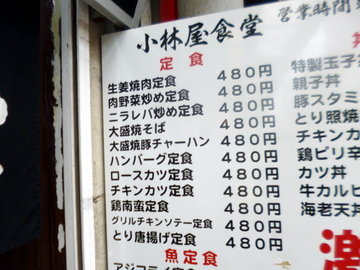 小林屋食堂
営業時間
定食
生姜焼肉定食 480円
肉野菜炒め定食 480円
ニラレバ炒め定食 480円
大盛焼そば 480円
大盛焼豚チャーハン 480円
ハンバーグ定食 480円
ロースカツ定食 480円
チキンカツ定食 480円
鶏南蛮定食 480円
グリルチキンソテー定食 480円
とり唐揚げ定食 480円
魚定食
特製玉子丼
親子丼
豚スタミ
とり照焼
チキンカ
鶏ピリ辛
カツ丼
牛カルビ
海老天丼